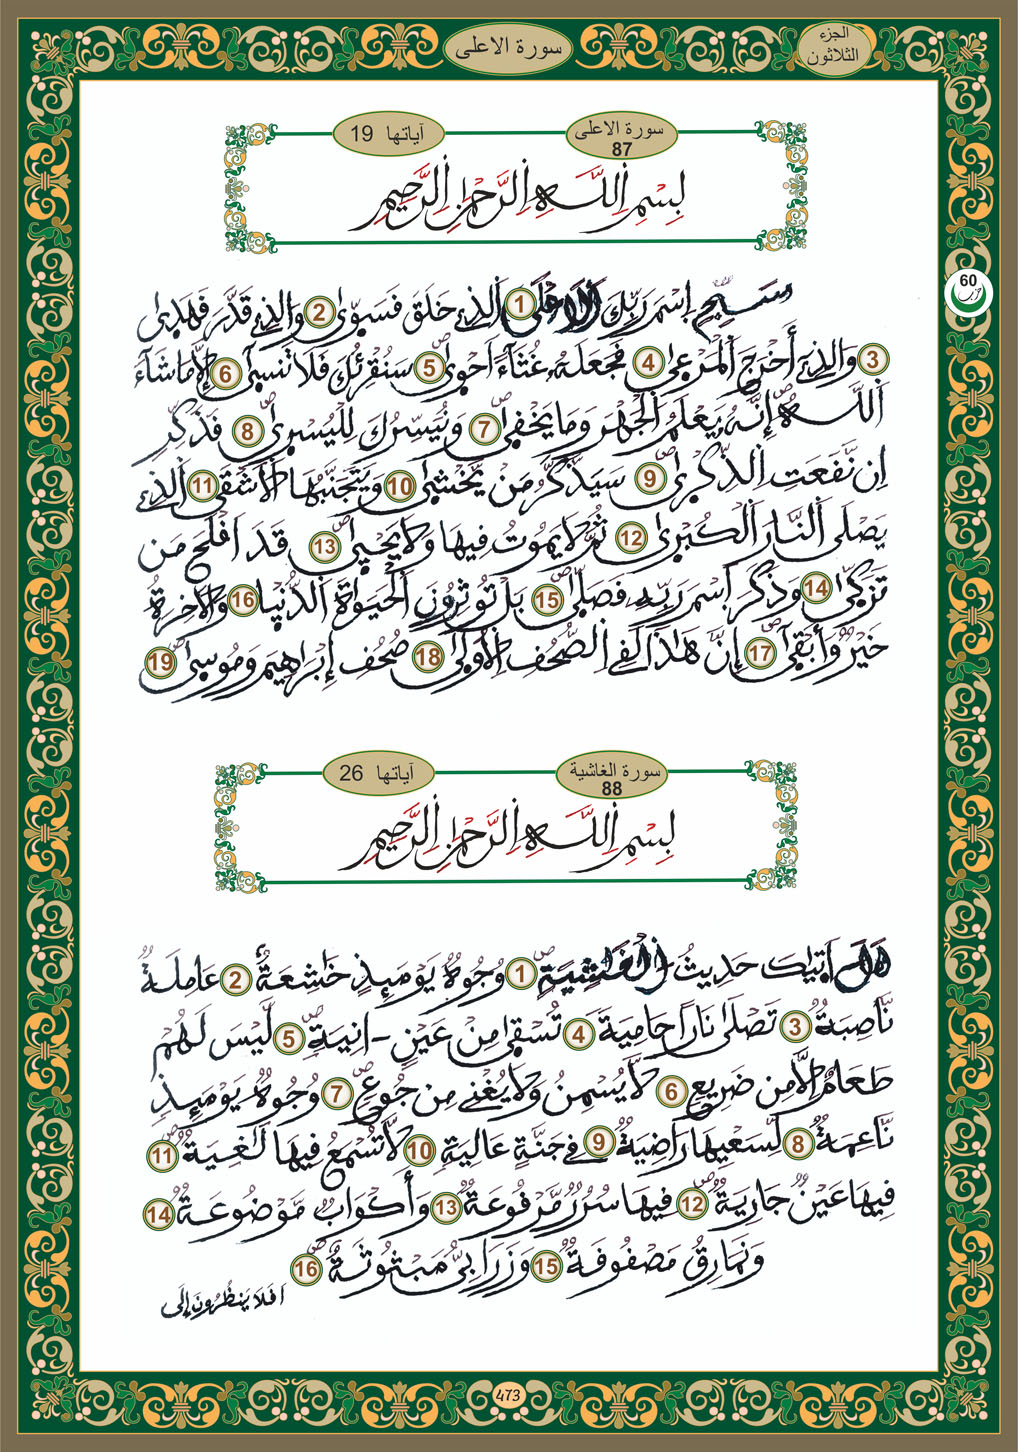 سورة الاعلى
الجزء
الثلاثون
سورة الاعلى
87
آياتها 19
بِسْمِ اِ۬للَّهِ اِ۬لرَّحْمَٰنِ اِ۬لرَّحِيمِ
60
حزب
سَبِّحِ اِ۪سْمَ رَبِّكَ اَ۬لَاعْلَى 1 اَ۬لذِے خَلَقَ فَسَوّ۪ىٰ 2 وَالذِے قَدَّرَ فَهَد۪ىٰ
3 وَالذِے أَخْرَجَ اَ۬لْمَرْع۪ىٰ 4 فَجَعَلَهُۥ غُثَآءً اَحْو۪ىٰ 5 سَنُقْرِئُكَ فَلَا تَنس۪ىٰٓ 6 إِلَّا مَا شَآءَ
اَ۬للَّهُ إِنَّهُۥ يَعْلَمُ اُ۬لْجَهْرَ وَمَا يَخْف۪ىٰ 7 وَنُيَسِّرُكَ لِلْيُسْر۪ىٰ 8 فَذَكِّرِ
اِن نَّفَعَتِ اِ۬لذِّكْر۪ىٰ 9 سَيَذَّكَّرُ مَنْ يَّخْش۪ىٰ 10 وَيَتَجَنَّبُهَا اَ۬لَاشْقَى 11 اَ۬لذِے
يَصْلَى اَ۬لنَّارَ اَ۬لْكُبْر۪ىٰ 12 ثُمَّ لَا يَمُوتُ فِيهَا وَلَا يَحْي۪ىٰ 13 قَدَ اَفْلَحَ مَن
تَزَكّ۪ىٰ 14 وَذَكَرَ اَ۪سْمَ رَبِّهِۦ فَصَلّ۪ىٰ 15 بَلْ تُوثِرُونَ اَ۬لْحَيَوٰةَ اَ۬لدُّنْي۪ا 16 وَالَاخِرَةُ
خَيْرٌ وَأَبْق۪ىٰٓ 17 إِنَّ هَٰذَا لَفِے اِ۬لصُّحُفِ اِ۬لُاول۪ىٰ 18 صُحُفِ إِبْرَٰهِيمَ وَمُوس۪ىٰ 19
سورة الغاشية
88
آياتها 26
بِسْمِ اِ۬للَّهِ اِ۬لرَّحْمَٰنِ اِ۬لرَّحِيمِ
هَلَ اَت۪يٰكَ حَدِيثُ اُ۬لْغَٰشِيَةِ 1 وُجُوهٌ يَوْمَئِذٍ خَٰشِعَةٌ 2 عَامِلَةٌ
نَّاصِبَةٌ 3 تَصْلَىٰ نَاراً حَامِيَةً 4 تُسْق۪ىٰ مِنْ عَيْنٍ ـ اٰنِيَةٍ 5 لَّيْسَ لَهُمْ
طَعَامٌ اِلَّا مِن ضَرِيعٍ 6 لَّا يُسْمِنُ وَلَا يُغْنِے مِن جُوعٍ 7 وُجُوهٌ يَوْمَئِذٍ
نَّاعِمَةٌ 8 لِّسَعْيِهَا رَاضِيَةٌ 9 فِے جَنَّةٍ عَالِيَةٍ 10 لَّا تُسْمَعُ فِيهَا لَٰغِيَةٌ 11
فِيهَا عَيْنٌ جَارِيَةٌ 12 فِيهَا سُرُرٌ مَّرْفُوعَةٌ 13 وَأَكْوَابٌ مَّوْضُوعَةٌ 14
وَنَمَارِقُ مَصْفُوفَةٌ 15 وَزَرَابِيُّ مَبْثُوثَةٌ 16
اَفَلَا يَنظُرُونَ إِلَى
473